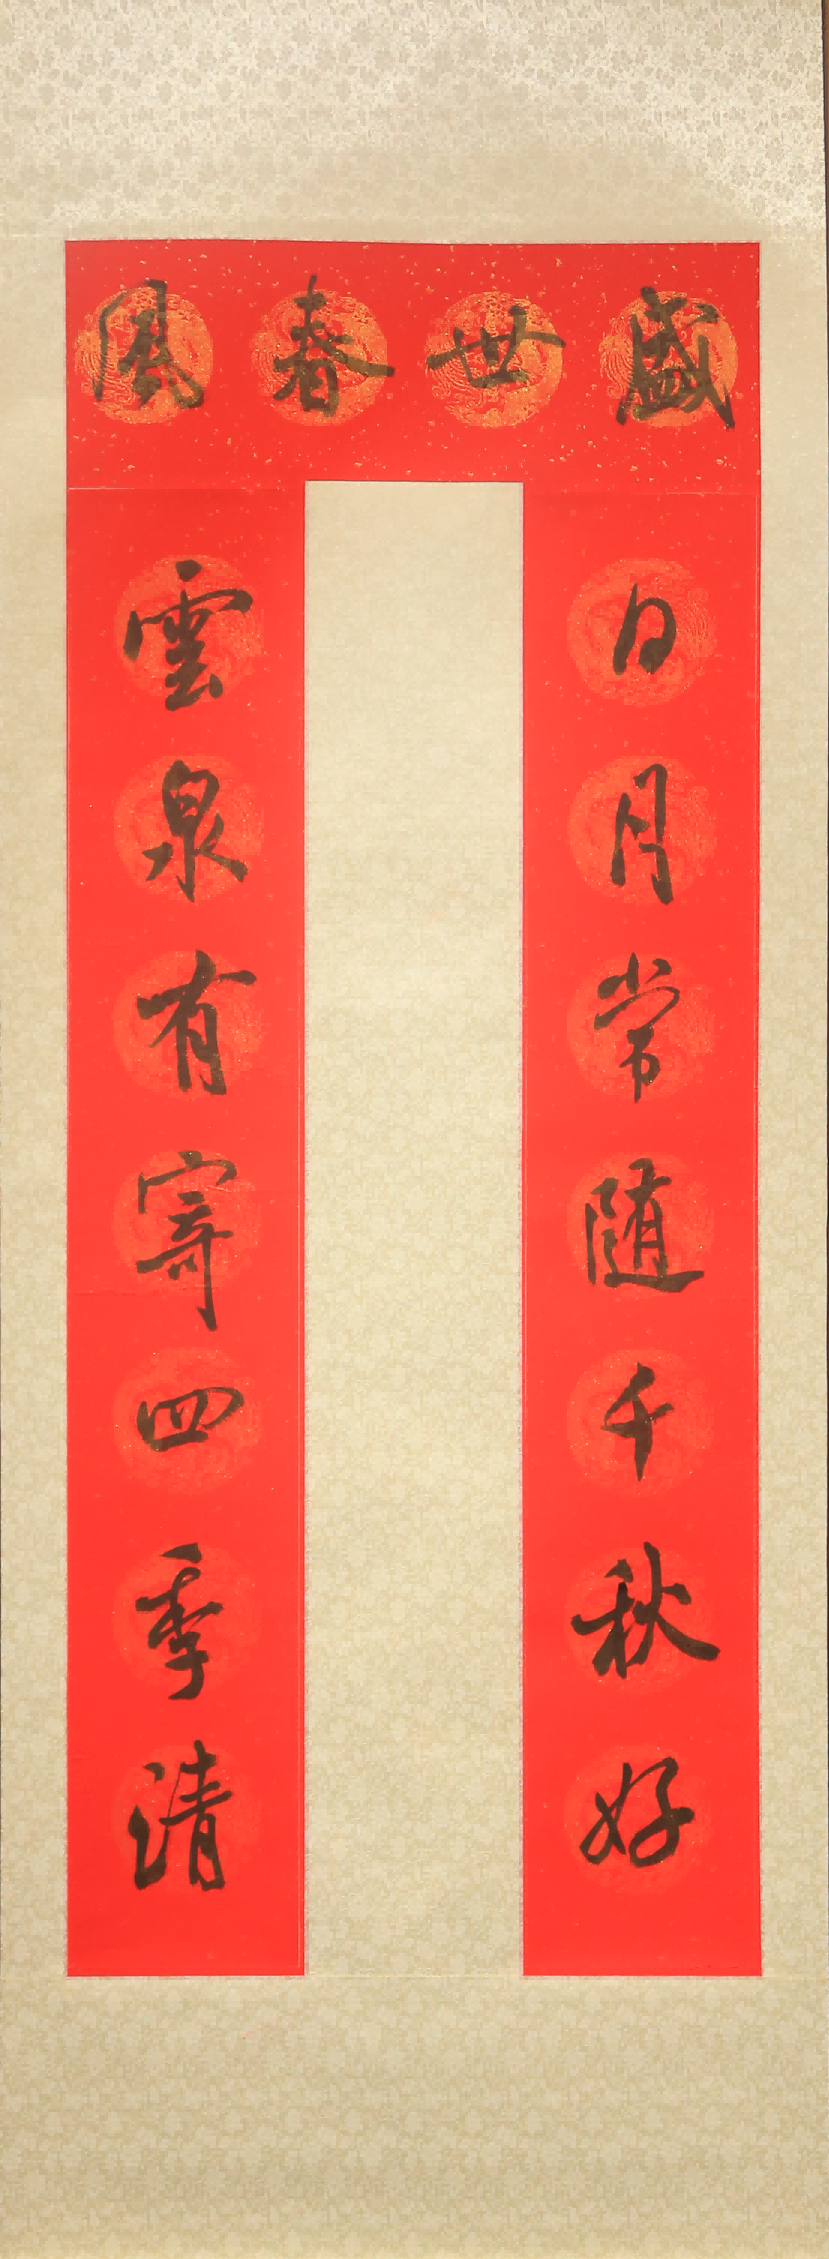 盛世春風
日月常随千秋好
雲泉有寄四季清